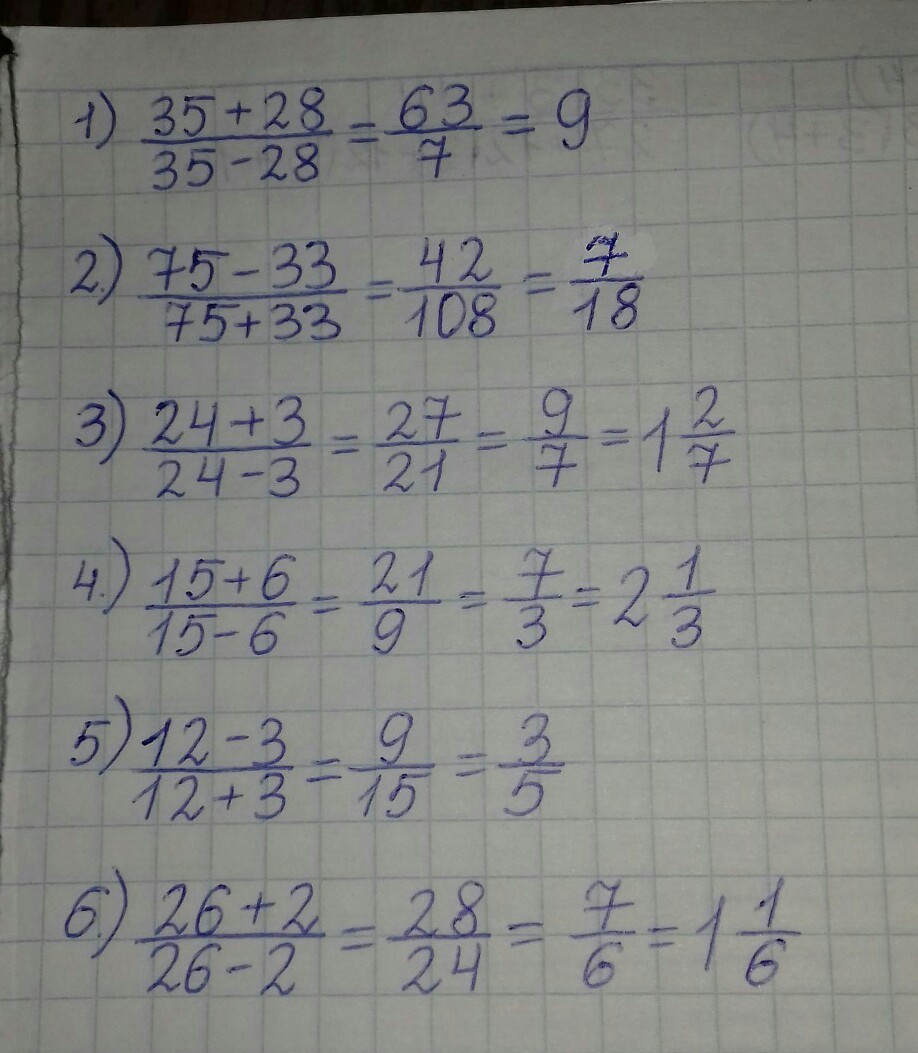 1) (35+28)/(35-28) = 63/7 = 9
2.) (75-33)/(75+33) = 42/108 = 7/18
3) (24+3)/(24-3) = 27/21 = 9/7 = 1 2/7
4.) (15+6)/(15-6) = 21/9 = 7/3 = 2 1/3
5) (12-3)/(12+3) = 9/15 = 3/5
6.) (26+2)/(26-2) = 28/24 = 7/6 = 1 1/6